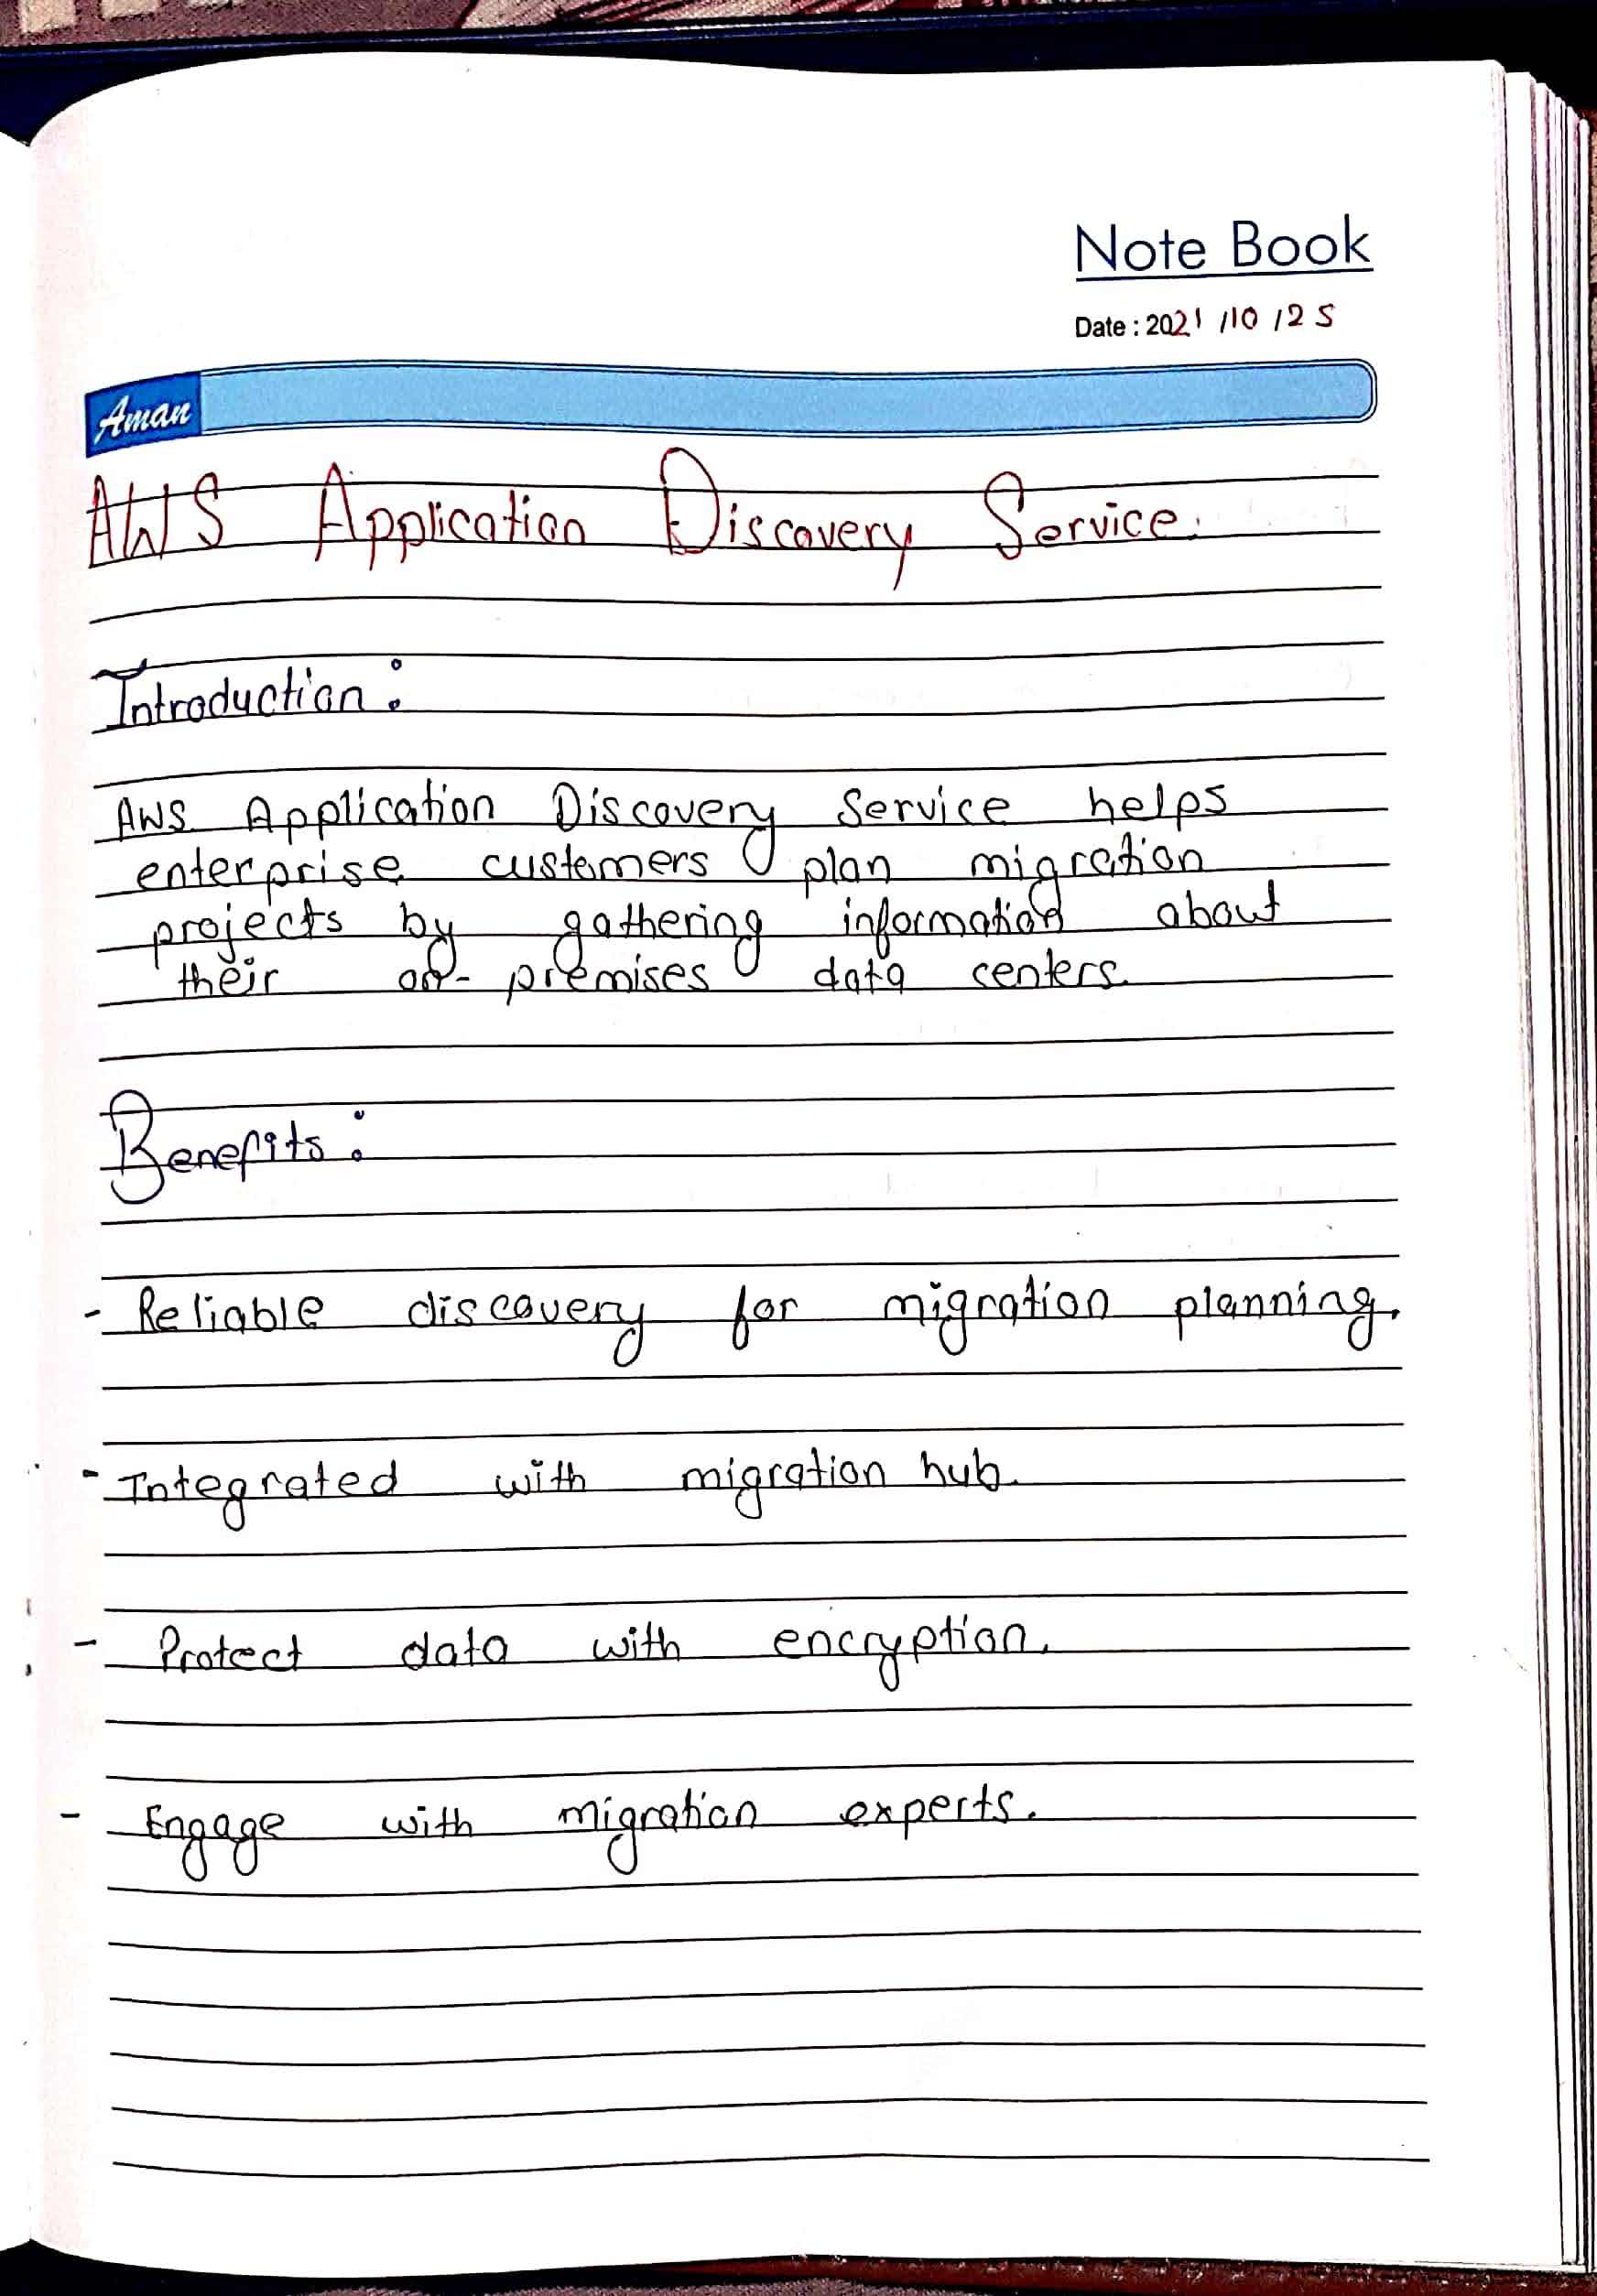 Note Book
Date : 2021 /10 /25
Aman
AWS Application Discovery Service.
Introduction :
AWS Application Discovery Service helps
enterprise customers plan migration
projects by gathering information about
their on-premises data centers.
Benefits :
- Reliable discovery for migration planning.
- Integrated with migration hub.
- Protect data with encryption.
- Engage with migration experts.